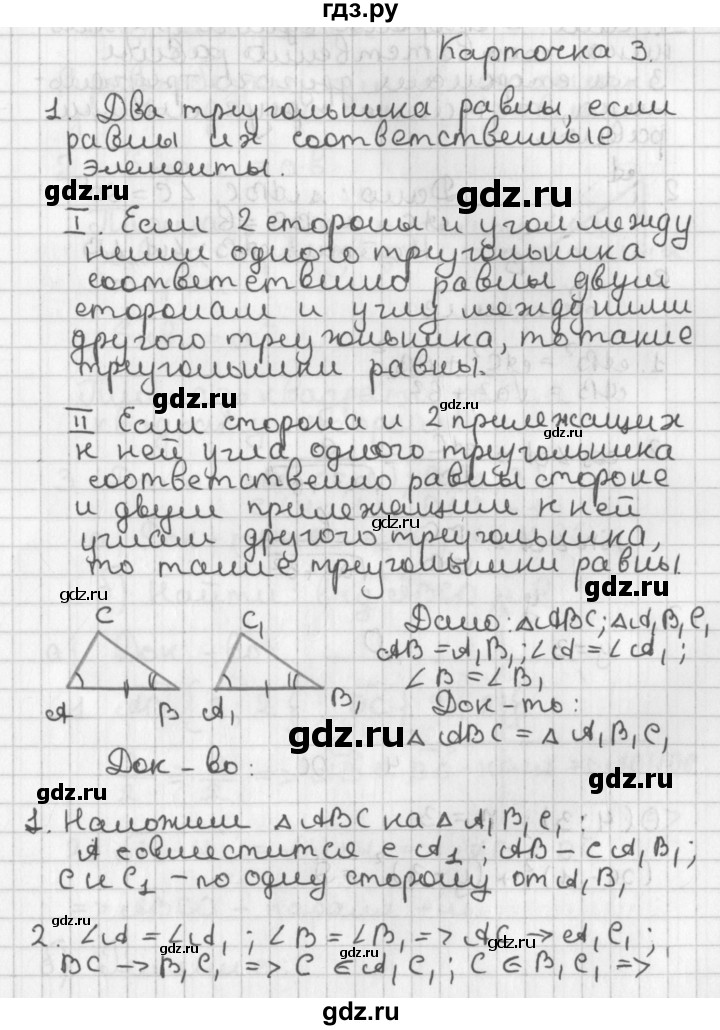 гдз.ру
Карточка 3.
1. Два треугольника равны, если
равны их соответственные
элементы.
gdz.ru
gdz.ru
I. Если 2 стороны и угол между
ними одного треугольника
соответственно равны двум
сторонам и углу между ними
другого треугольника, то такие
треугольники равны.
gdz.ru
gdz.ru
II Если сторона и 2 прилежащих
gdz.ru
к ней угла одного треугольника
соответственно равны стороне
и двум прилежащим к ней
gdz.ru
углам другого треугольника,
то такие треугольники равны.
gdz.ru
gdz.ru
C C₁
A B A₁ B₁
Дано: △ABC; △A₁B₁C₁
AB = A₁B₁; ∠A = ∠A₁;
∠B = ∠B₁
Док-ть:
gdz.ru
△ABC = △A₁B₁C₁
Док-во:
gdz.ru
gdz.ru
1. Наложим △ABC на △A₁B₁C₁:
A совместится с A₁; AB – с A₁B₁;
C и C₁ – по одну сторону от A₁B₁
gdz.ru
gdz.ru
2. ∠A = ∠A₁; ∠B = ∠B₁ => AC → A₁C₁;
gdz.ru
BC → B₁C₁ => C ∈ A₁C₁; C ∈ B₁C₁ =>
gdz.ru